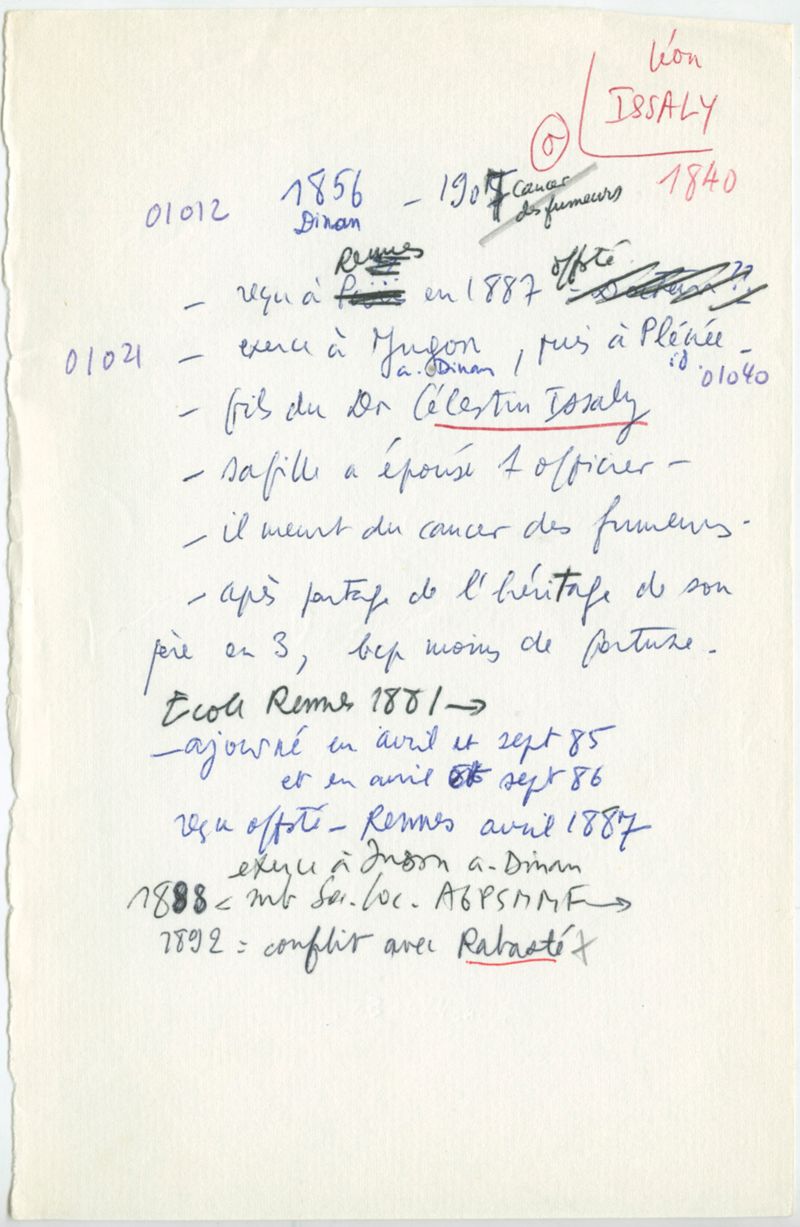 Léon
ISSALY
O
1840
01012 1856 – 1907 cancer
Dinan des fumeurs
Rennes offsté
– reçu à en 1887
01021 – exerce à Jugon, puis à Plénée –
a. Dinan id. 01040
– fils du Dr Célestin Issaly
– sa fille a épousé 1 officier –
– il meurt du cancer des fumeurs.
– après partage de l'héritage de son
père en 3, bcp moins de fortune.
Ecole Rennes 1881 →
– ajourné en avril et sept 85
et en avril et sept 86
reçu offsté – Rennes avril 1887
exerce à Jugon a. Dinan
1888 < mb Soc. loc. AGPSMMF →
1892 = conflit avec Rabasté +